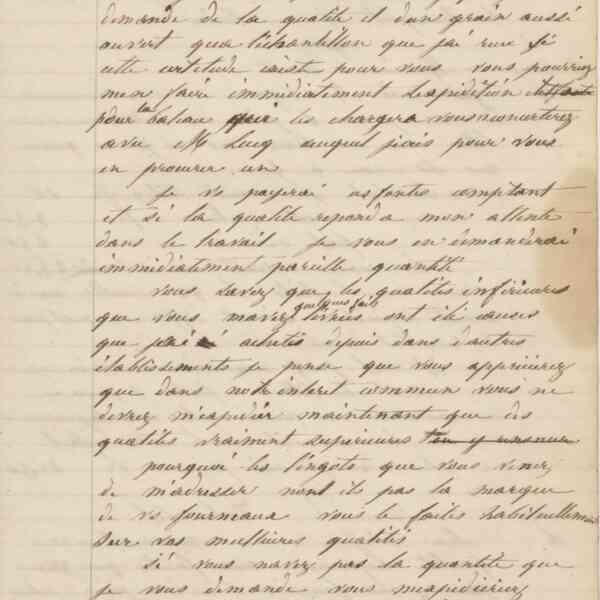 demande de la qualité et d'un grain aussi
ouvert que l'échantillon que j'ai reçu si
cette certitude existe pour vous vous pourriez
men faire immédiatement l'expédition
pour la bateau qui les chargera vous
avec M Lucq auquel j'écris pour vous
en procurer un
Je vs payerai as fontes comptant
et si la qualité repond a mon attente
dans le travail je vous en demanderai
immédiatement pareille quantité
vous savez que les qualités inférieures
que vous mavez quelques fois livrées ont été causes
que j'ai achetés depuis dans dautres
établissements je pense que vous apprécierez
que dans notre intérêt commun vous ne
devrez m'expédier maintenant que des
qualités vraiment supérieures
pourquoi les lingots que vous venez
de m'adresser nont ils pas la marque
de vs fourneaux vous le faites habituellement
sur vos meilleures qualités
si vous navez pas la quantité que
je vous demande vous mexpédieriez